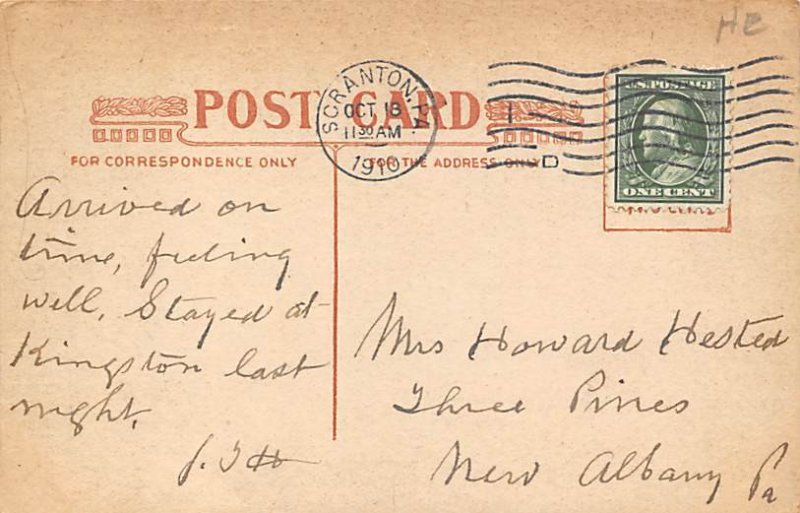 HE
POST CARD
SCRANTON, PA.
OCT 18
11 30 AM
1910
D
U.S. POSTAGE
ONE CENT
FOR CORRESPONDENCE ONLY
FOR THE ADDRESS ONLY
Arrived on
time, feeling
well. Stayed at
Kingston last
night.
Mrs Howard Hested
Three Pines
New Albany Pa